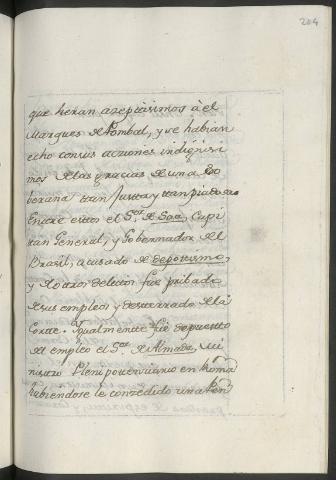 204
que heran azeptisimos à el
Marques de Pombal, y se habian
echo con sus acziones indignisi
mos de las gracias de una So
berana tan Justa y tan piadosa
Entre estos el Sor. de Sosa, Capi
tan General, y Gobernador del
Brasil, acusado de depotismo,
y de otros delictos fue pribado
de sus empleos y desterrado de la
Corte. Igualmente fue depuesto
del empleo el Sor. de Almada, Mi
nistro Plenipotenciario en Roma
habiendose le conzedido una Pen